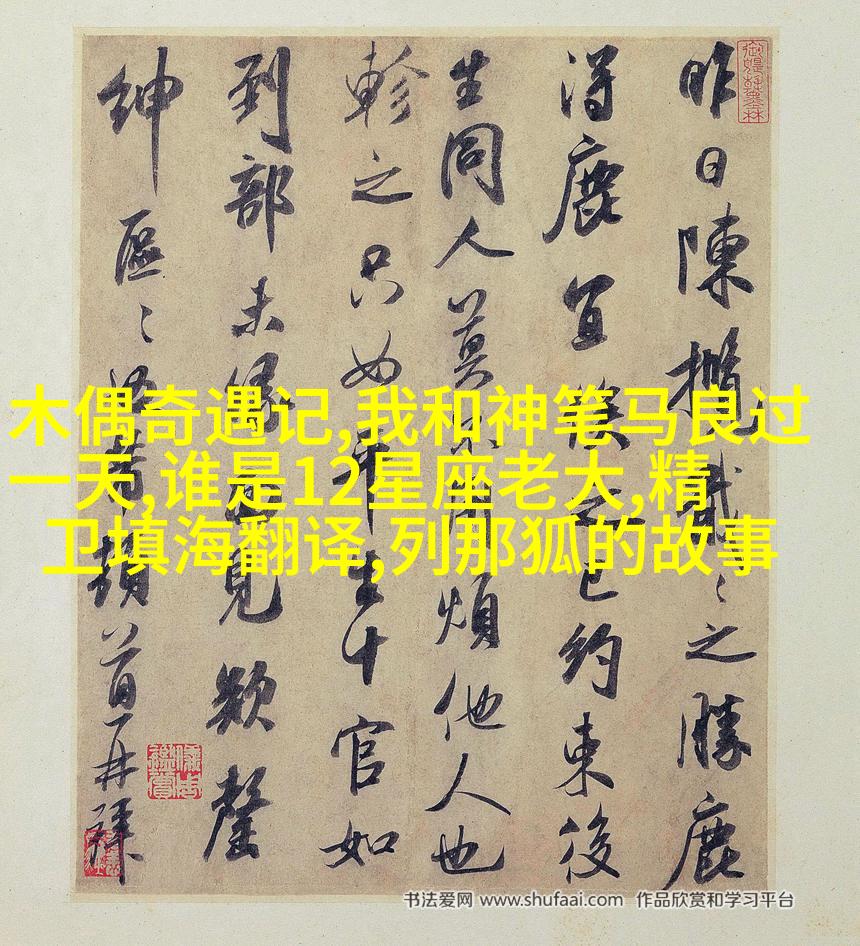 昨日陳攬戢〻之勝鹿
得鹿宜已約束後
生同人莫煩他人也
軫之只如平生十官如
到部未緣見欽
紳區〻頓首再拜
木偶奇遇记,我和神笔马良过
一天,谁是12星座老大,精
卫填海翻译,列那狐的故事
书法爱网 www.shufaai.com 作品欣赏和学习平台